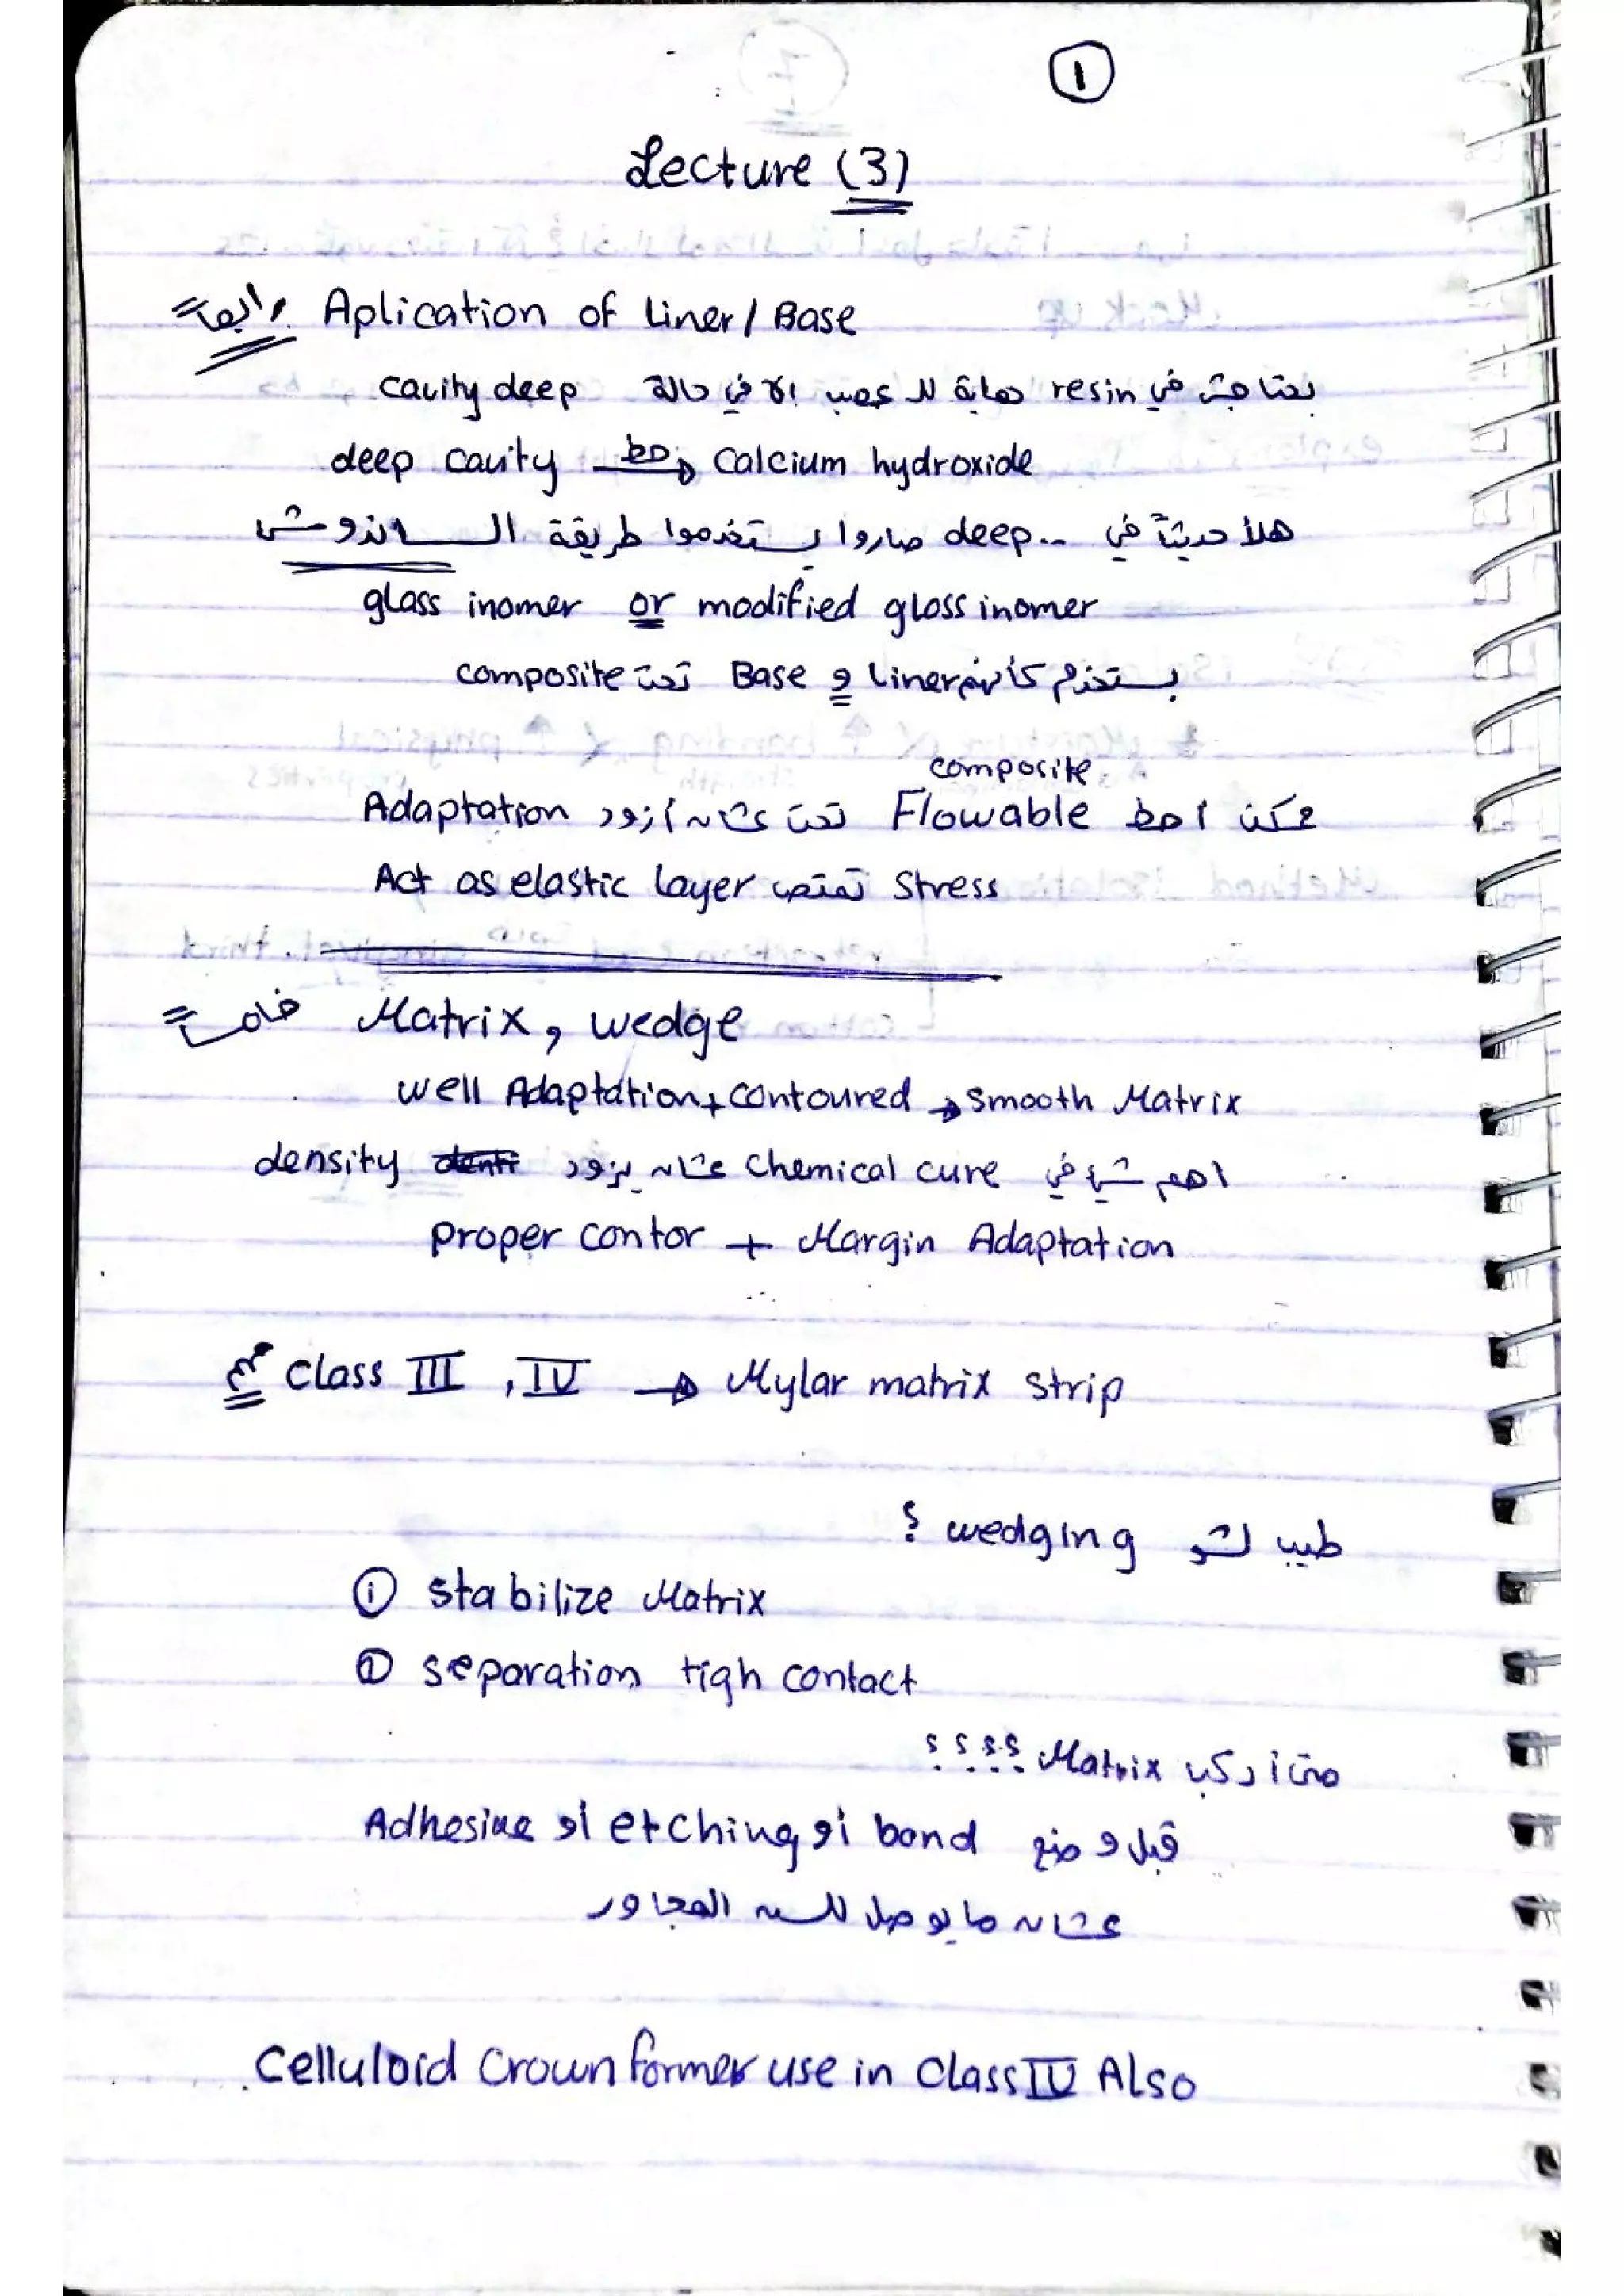 1
Lecture (3)
رابعاً Aplication of Liner / Base
بحتاجش في resin حماية للعصب الا في حالة cavity deep
deep cavity بحط → Calcium hydroxide
هلأ حديثاً في deep.. صاروا يستخدموا طريقة الساندوش
glass inomer or modified glass inomer
بستخدم كأنهم Liner و Base تحت composite
composite
ممكن احط Flowable تحت عشان أزود Adaptation
Act as elastic layer تمتص Stress
خامساً Matrix, wedge
well Adaptation + contoured → smooth Matrix
اهم شيء في chemical cure عشان يزود density
proper contor + Margin Adaptation
Class III , IV → Mylar matrix strip
طيب لشو wedging ؟
① stabilize Matrix
② separation tigh contact
متى أركب Matrix ؟؟؟؟
قبل وضع bond أو etching أو Adhesive
عشان ما يوصل للسن المجاور
Celluloid Crown former use in Class IV Also